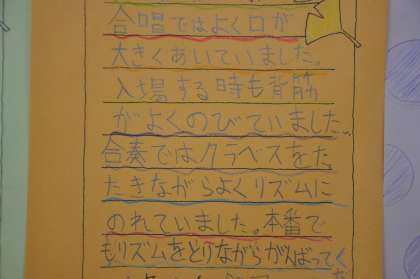 合唱ではよく口が
大きくあいていました。
入場する時も背筋
がよくのびていました。
合奏ではクラベスをた
たきながらよくリズムに
のれていました。本番で
もリズムをとりながらがんばってく